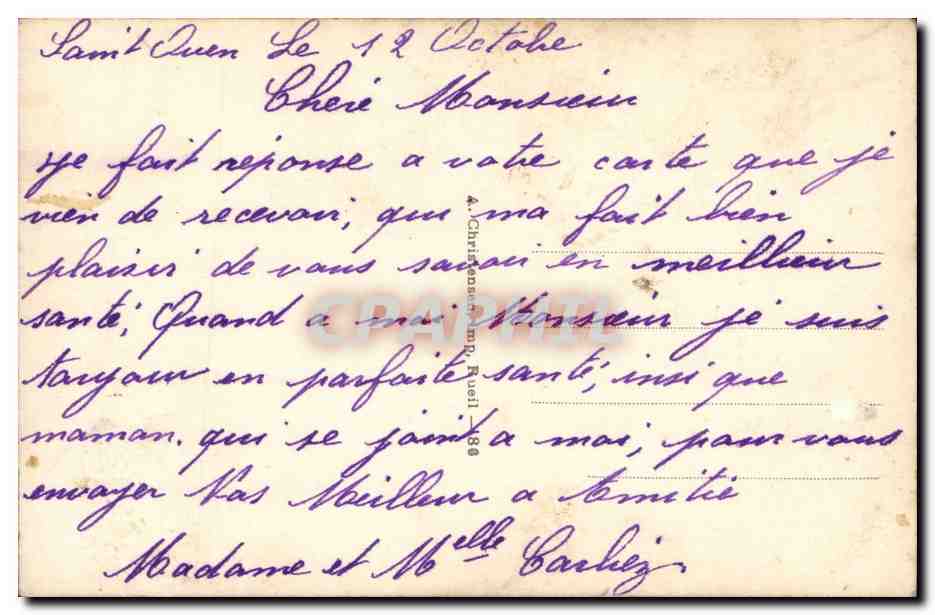 Saint Ouen Le 12 Octobre
Cheré Monsieur
Je fait réponse a votre carte que je
vien de recevoir, qui ma fait bien
plaisir de vous savoir en meillieur
santé, Quand a moi Monsieur je suis
toujour en parfaite santé, insi que
maman. qui se joint a moi, pour vous
envoyer Nos Meilleur a Amitie
Madame et Melle Carliez
A. Christensen, Imp. Rueil
CPAPHIL